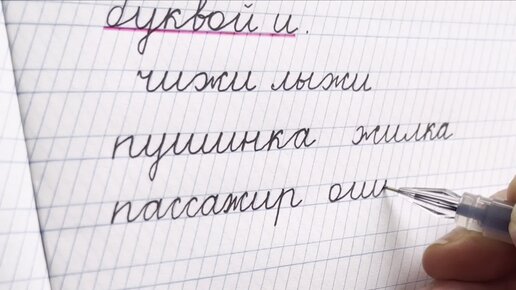 буквой и.
чижи лыжи
пушинка жилка
пассажир оши